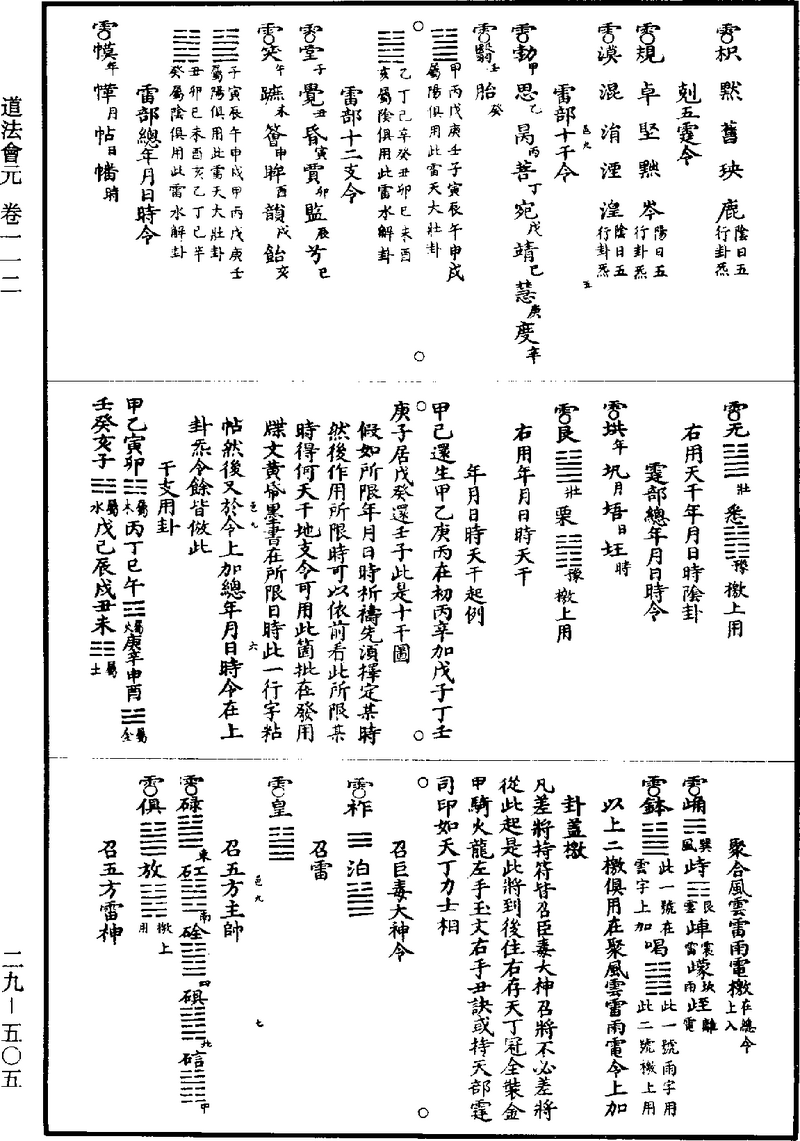 道法會元 卷一一二
二九—五〇五
枳 默 舊 玦 鹿 陰日五行卦炁
剋五霆令
規 卓 堅 黙 岑 陽日五行卦炁
漠 混 湇 湮 湟 陰日五行卦炁
雷部十干令
勃甲 思乙 昺丙 菩丁 宛戊 靖己 慧庚 度辛
翳壬 胎癸
甲丙戊庚壬子寅辰午申戌
屬陽俱用此雷天大壯卦
乙丁己辛癸丑卯巳未酉
亥屬陰俱用此雷水解卦
雷部十二支令
堂子 覺丑 昏寅 賈卯 監辰 芩巳
笑午 蹠未 簪申 睥酉 韻戌 飴亥
子寅辰午申戌甲丙戊庚壬
屬陽俱用此雷天大壯卦
丑卯巳未酉亥乙丁己辛
癸屬陰俱用此雷水解卦
雷部總年月日時令
幙年 㠢月 帖日 幡時
元 壯 悉 豫 檄上用
右用天干年月日時陰卦
霆部總年月日時令
垬年 圦月 捂日 𡉄時
艮 壯 栗 豫 檄上用
右用年月日時天干
年月日時天干起例
甲己還生甲乙庚丙在初丙辛加戊子丁壬
庚子居戊癸還壬子此是十干圖
假如所限年月日時祈禱先須擇定某時
然後作用所限時可以依前看此所限某
時得何天干地支令可用此箇批在發用
牒文黄帋墨書在所限日時此一行字粘
帖然後又於令上加總年月日時令在上
卦炁令餘皆倣此
干支用卦
甲乙寅卯 屬木 丙丁巳午 屬火 庚辛申酉 屬金
壬癸亥子 屬水 戊己辰戌丑未 屬土
聚合風雲雷雨電檄 在總令上入
峬 巽風 峙 艮雲 㟁 震雷 㠓 坎雨 峌 離電
鉢 此一號在雲字上加 喝 此一號雨字用 此二號檄上用
以上二檄俱用在聚風雲雷雨電令上加
卦蓋檄
凡差將持符皆召巨毒大神召將不必差將
從此起是此將到後住右存天丁冠全裝金
甲騎火龍左手玉文右手丑訣或持天部霆
司印如天丁力士相
召巨毒大神令
祚 泊
召雷
皇
召五方主帥
碌 東 矼 南 硂 西 磌 北 碚 中
俱 放 檄上用
召五方雷神